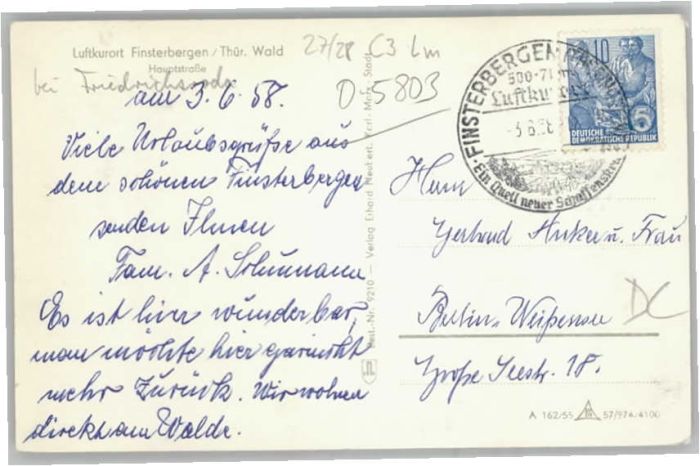 Luftkurort Finsterbergen / Thür. Wald
Hauptstraße
bei Friedrichroda
27/28 C3 Lm
D 5803
am 3.6.58.
Viele Urlaubsgrüße aus
dem schönen Finsterbergen
senden Ihnen
Fam. A. Schumann
Es ist hier wunderbar,
man möchte hier garnicht
mehr zurück. Wir wohnen
direkt am Walde.
Best.-Nr. 9210 — Verlag Erhard Neubert, Karl-Marx-Stadt
FINSTERBERGEN
500-71
Luftkurort
-3.6.58
Ein Quell neuer Schaffenskraft
10
DEUTSCHE
DEMOKRATISCHE REPUBLIK
5
Herrn
Gerhard Anker u. Frau
Berlin-Weißensee
Große Seestr. 18.
DC
A 162/55 57/974/4100